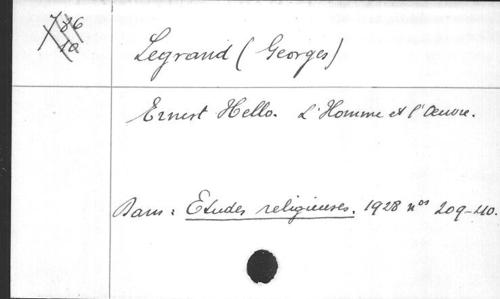 786
10
Legrand (Georges)
Ernest Hello. L'Homme et l'Oeuvre.
Dans : Etudes religieuses. 1928 nos 209-210.